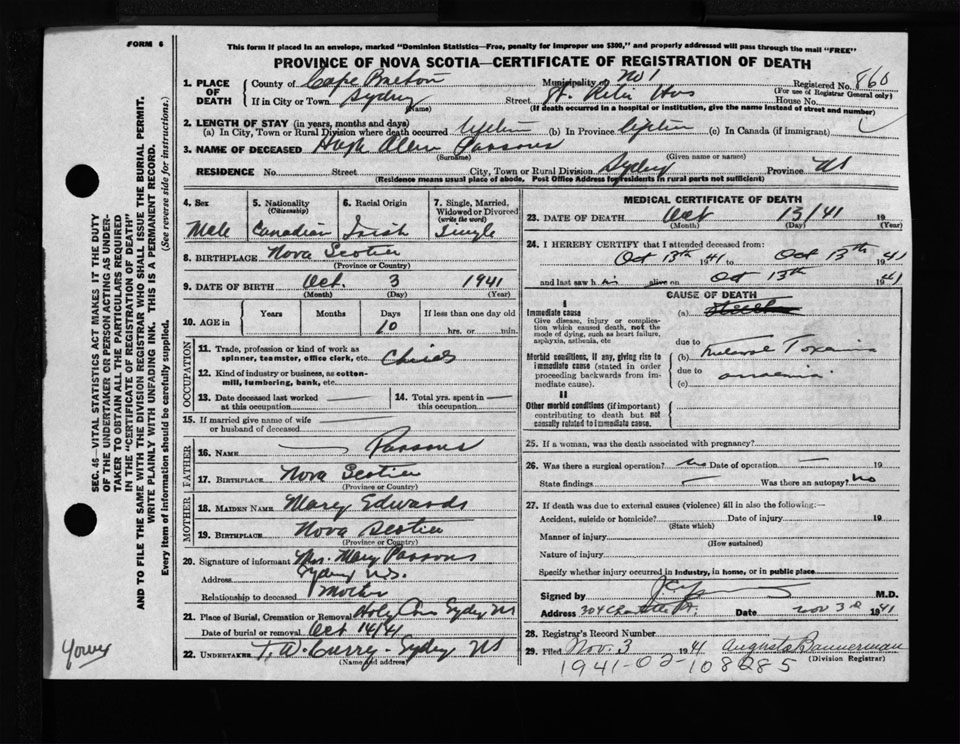 FORM 6
This form if placed in an envelope, marked "Dominion Statistics—Free, penalty for improper use $300," and properly addressed will pass through the mail "FREE"
PROVINCE OF NOVA SCOTIA—CERTIFICATE OF REGISTRATION OF DEATH
1. PLACE OF DEATH
County of Cape Breton
Municipality of No 1
Registered No. 860
(For use of Registrar General only)
If in City or Town Sydney Street St. Rita Hos House No.
(Name)
(If death occurred in a hospital or institution, give the name instead of street and number)
2. LENGTH OF STAY (in years, months and days)
(a) In City, Town or Rural Division where death occurred lifetime (b) In Province lifetime (c) In Canada (if immigrant)
3. NAME OF DECEASED Hugh Parsons
(Surname) (Given name or names)
RESIDENCE No. Street City, Town or Rural Division Sydney Province NS
(Residence means usual place of abode. Post Office Address for residents in rural parts not sufficient)
4. Sex
Male
5. Nationality
(Citizenship)
Canadian
6. Racial Origin
Irish
7. Single, Married, Widowed or Divorced
(write the word)
Single
8. BIRTHPLACE Nova Scotia
(Province or Country)
9. DATE OF BIRTH Oct. 3 1941
(Month) (Day) (Year)
10. AGE in
Years Months Days If less than one day old
10 hrs. or min.
OCCUPATION
11. Trade, profession or kind of work as
spinner, teamster, office clerk, etc. Child
12. Kind of industry or business, as cotton-
mill, lumbering, bank, etc.
13. Date deceased last worked
at this occupation
14. Total yrs. spent in
this occupation
15. If married give name of wife
or husband of deceased
FATHER
16. NAME Parsons
17. BIRTHPLACE Nova Scotia
(Province or Country)
MOTHER
18. MAIDEN NAME Mary Edwards
19. BIRTHPLACE Nova Scotia
(Province or Country)
20. Signature of informant Mrs. Mary Parsons
Address Sydney N.S.
Relationship to deceased Mother
21. Place of Burial, Cremation or Removal Holy Sydney NS
Date of burial or removal Oct 14/41
22. UNDERTAKER T. W. Curry - Sydney NS
(Name and address)
MEDICAL CERTIFICATE OF DEATH
23. DATE OF DEATH Oct 13/41 19
(Month) (Day) (Year)
24. I HEREBY CERTIFY that I attended deceased from:
Oct 13th 1941 to Oct 13th 1941
and last saw h im alive on Oct 13th 1941
CAUSE OF DEATH
I
Immediate cause
Give disease, injury or complica-
tion which caused death, not the
mode of dying, such as heart failure,
asphyxia, asthenia, etc
(a)
due to
Morbid conditions, if any, giving rise to
immediate cause (stated in order
proceeding backwards from im-
mediate cause).
(b) Toxemia
due to
(c) anaemia.
II
Other morbid conditions (if important)
contributing to death but not
causally related to immediate cause.
25. If a woman, was the death associated with pregnancy?
26. Was there a surgical operation? no Date of operation — 19
State findings — Was there an autopsy? no
27. If death was due to external causes (violence) fill in also the following:—
Accident, suicide or homicide? Date of injury 19
(State which)
Manner of injury
(How sustained)
Nature of injury
Specify whether injury occurred in industry, in home, or in public place
Signed by M.D.
Address 304 Charlotte St. Date Nov 3rd 1941
28. Registrar's Record Number
29. Filed Nov. 3 1941 Augusta Bannerman
(Division Registrar)
1941-02-108285
SEC. 46—VITAL STATISTICS ACT MAKES IT THE DUTY
OF THE UNDERTAKER OR PERSON ACTING AS UNDER-
TAKER TO OBTAIN ALL THE PARTICULARS REQUIRED
IN THE "CERTIFICATE OF REGISTRATION OF DEATH"
AND TO FILE THE SAME WITH THE DIVISION REGISTRAR WHO SHALL ISSUE THE BURIAL PERMIT.
WRITE PLAINLY WITH UNFADING INK. THIS IS A PERMANENT RECORD.
Every item of information should be carefully supplied. (See reverse side for instructions.)